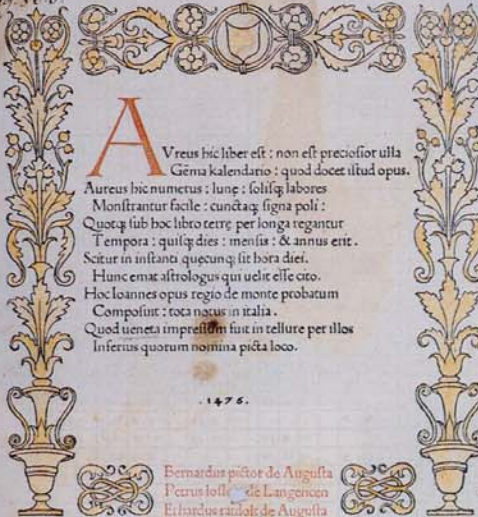 AVreus hic liber est : non est preciosior ulla
Gēma kalendario : quod docet istud opus.
Aureus hic numerus : lune : solisq; labores
Monstrantur facile : cunctaq; signa poli :
Quotq; sub hoc libro terre per longa regantur
Tempora : quisq; dies : mensis : & annus erit.
Scitur in instanti quecunq; sit hora diei.
Hunc emat astrologus qui uelit esse cito.
Hoc Ioannes opus regio de monte probatum
Composuit : tota notus in italia.
Quod ueneta impressum fuit in tellure per illos
Inferius quorum nomina picta loco.
.1476.
Bernardus pictor de Augusta
Petrus de Langencen
Erhardus ratdolt de Augusta